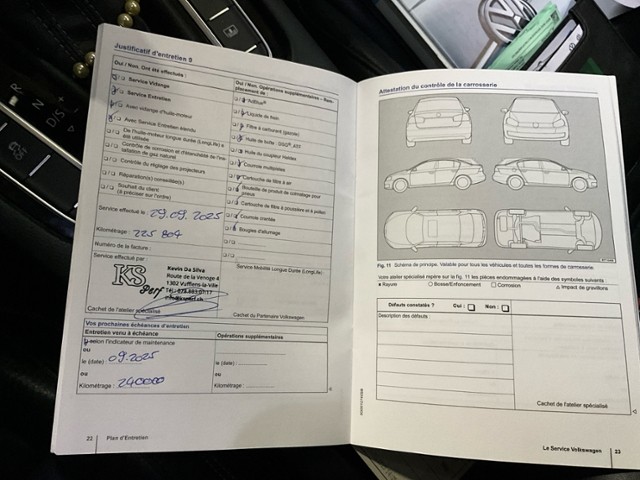 Justificatif d'entretien 9
Oui / Non. Ont été effectués :
Service Vidange
Service Entretien
Avec vidange d'huile-moteur
Avec Service Entretien étendu
De l'huile-moteur longue durée (LongLife) a
été utilisée
Contrôle du réglage des projecteurs
Réparation(s) conseillée(s)
Souhait du client
(à préciser sur l'ordre)
Service effectué le 29.09.2025
Kilométrage : 225 804
Numéro de la facture :
Service effectué par :
KS Perf
Kevin Da Silva
Route de la Venoge 4
1302 Vufflens-la-Ville
Cachet de l'atelier spécialisé
Oui / Non. Opérations supplémentaires – Rem-
placement de :
"AdBlue"
Liquide de frein
Filtre à carburant (gazole)
Huile du coupleur Haldex
Courroie multipistes
Cartouche de filtre à air
Bouteille de produit de colmatage pour
pneus
Cartouche de filtre à poussière et à pollen
Courroie crantée
Bougies d'allumage
Service Mobilité Longue Durée (LongLife)
Cachet du Partenaire Volkswagen.
Vos prochaines échéances d'entretien
Entretien venu à échéance
selon l'indicateur de maintenance
ou
le (date) : 09.2025
ou
Kilométrage : 240000
Opérations supplémentaires
le (date) :
ou
Kilométrage :
22 Plan d'Entretien
Attestation du contrôle de la carrosserie
Fig. 11 Schéma de principe. Valable pour tous les véhicules et toutes les formes de carrosserie.
Votre atelier spécialisé repère sur la fig. 11 les pièces endommagées à l'aide des symboles suivants :
Rayure Bosse/Enfoncement Corrosion Impact de gravillons
Défauts constatés ? Oui : Non :
Description des défauts :
Cachet de l'atelier spécialisé
Le Service Volkswagen 23
R
N
D/S